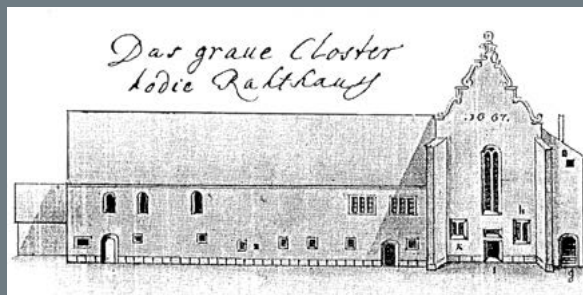 Das graue Closter
hodie Rahthauß
1667.
h
k
l
g